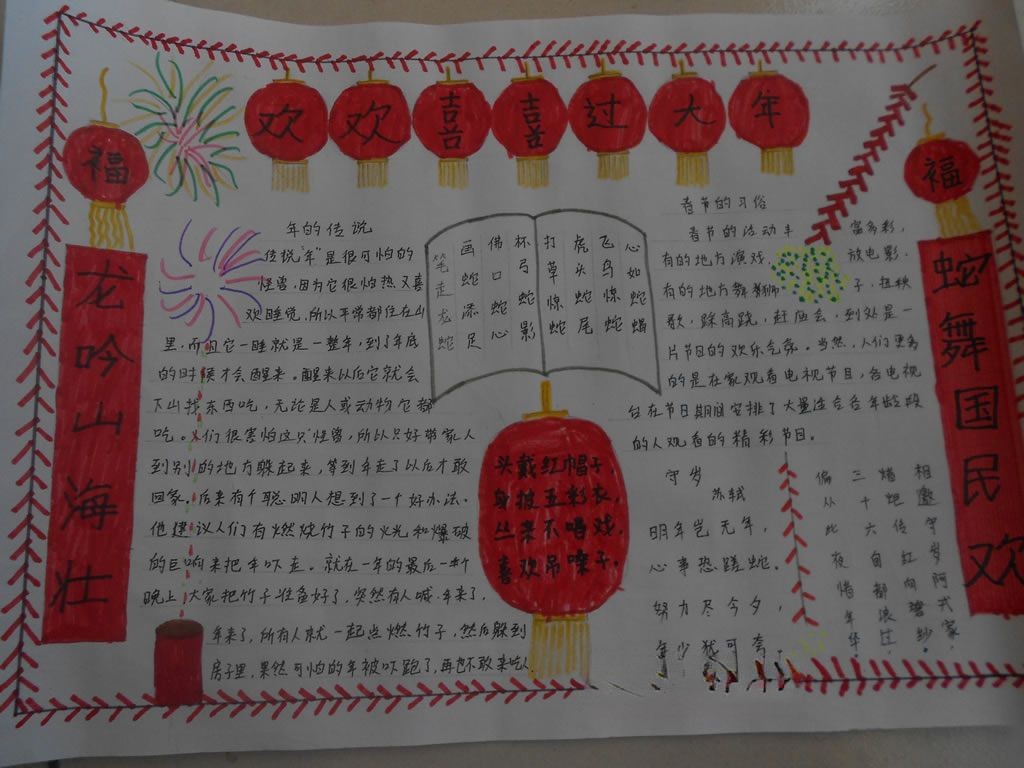 欢欢喜喜过大年
福
福
龙吟山海壮
蛇舞国民欢
年的传说
传说"年"是很可怕的
怪兽,因为它很怕热又喜
欢睡觉,所以平常都住在山
里,而且它一睡就是一整年,到了年底
的时候才会醒来。醒来以后它就会
下山找东西吃,无论是人或动物它都
吃。人们很害怕这只怪兽,所以只好带家人
到别的地方躲起来,等到年走了以后才敢
回家。后来有个聪明人想到了一个好办法。
他建议人们有燃烧竹子的火光和爆破
的巨响来把年吓走。就在一年的最后一个
晚上,大家把竹子准备好了,突然有人喊,年来了,
年来了,所有人就一起点燃竹子,然后躲到
房子里,果然可怕的年被吓跑了,再也不敢来吃人
笔走龙蛇
画蛇添足
佛口蛇心
杯弓蛇影
打草惊蛇
虎头蛇尾
飞鸟惊蛇
心如蛇蝎
头戴红帽子,
身披五彩衣,
从来不唱戏,
喜欢吊嗓子,
春节的习俗
春节的活动丰富多彩,
有的地方演戏,放电影,
有的地方舞狮子,扭秧
歌,踩高跷,赶庙会,到处是一
片节日的欢乐气象。当然,人们更多
的是在家观看电视节目,各电视
台在节日期间安排了大量适合各年龄段
的人观看的精彩节目。
守岁
苏轼
明年岂无年,
心事恐蹉蛇。
努力尽今夕,
年少犹可夸。
相邀守岁阿戎家,
蜡炬传红向碧纱,
三十六旬都浪过,
偏从此夜惜年华